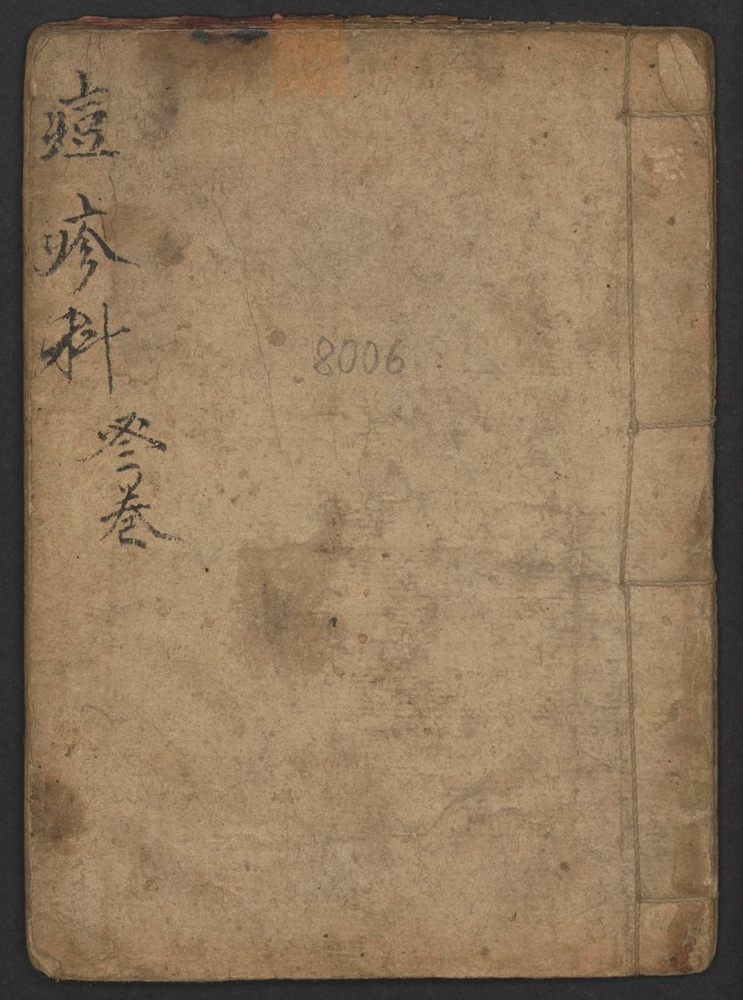 痘疹科
叁卷
8006